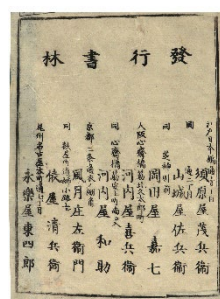 發行書林
江戸日本橋通壹丁目
須原屋茂兵衛
同 二丁目
山城屋佐兵衛
同 芝神明前
岡田屋嘉七
大阪心齋橋
河内屋喜兵衛
同 心齋橋
河内屋和助
京都二条通
風月庄左衛門
同
俵屋清兵衛
尾州名古屋本町通七丁目
永樂屋東四郎